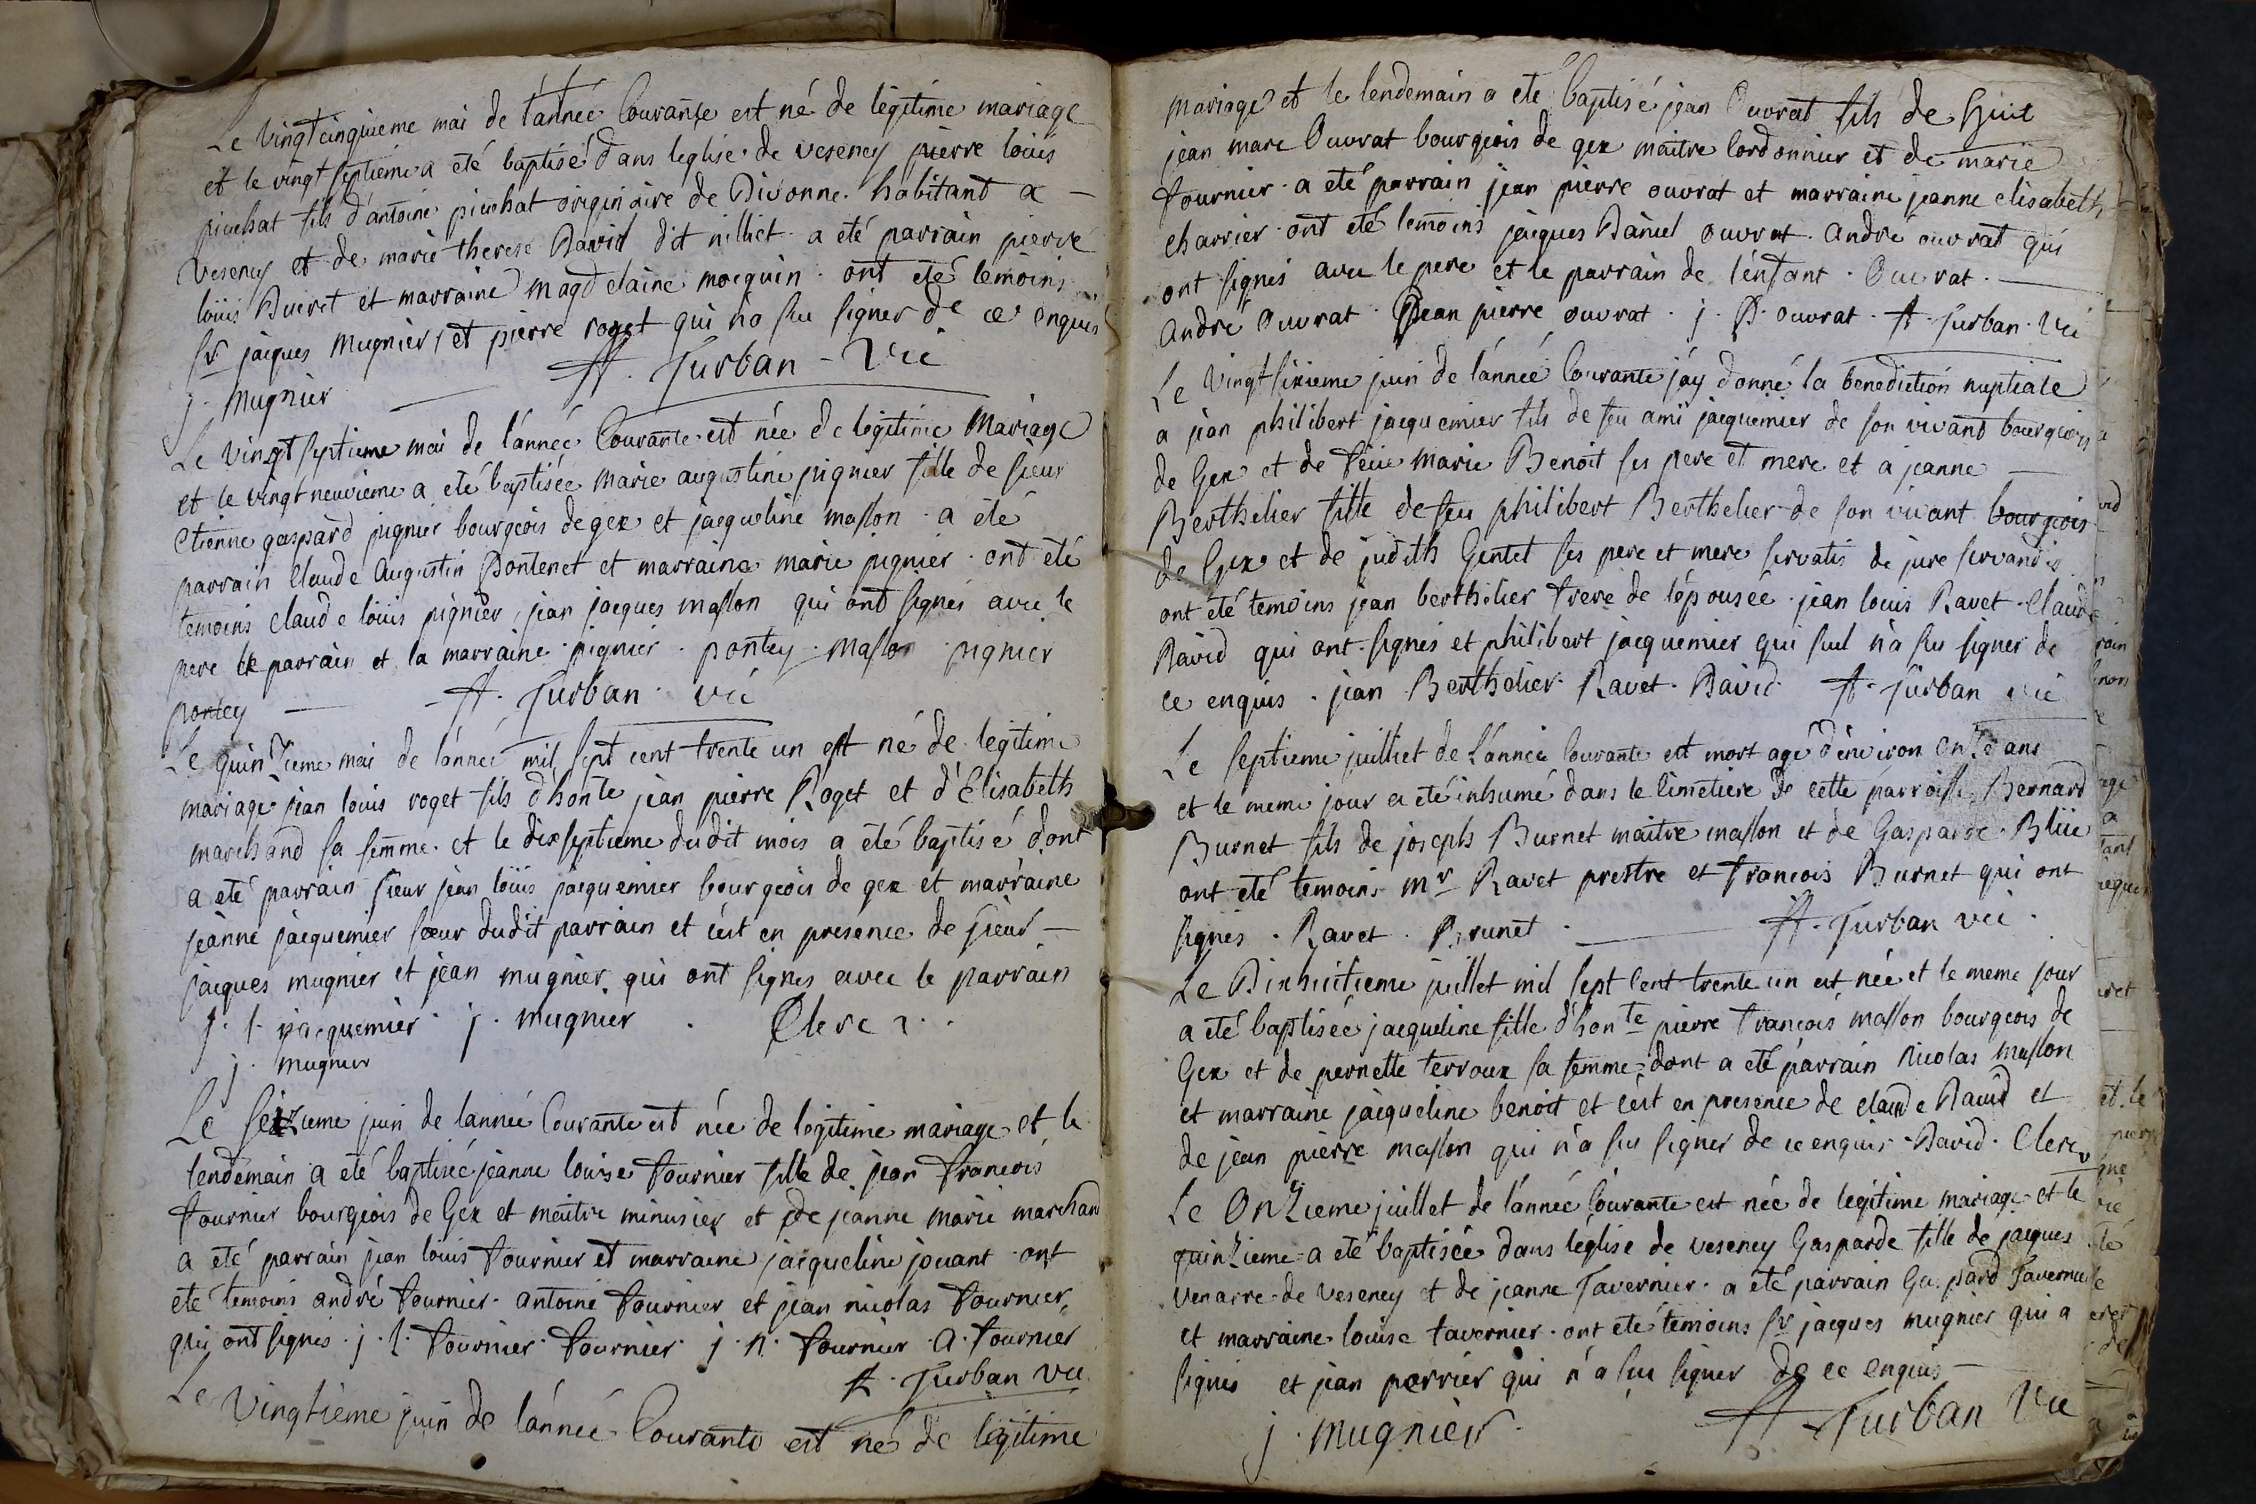 Le vingtcinquieme mai de l'année Courante est né de légitime mariage
et le vingt septiéme a eté baptisé dans leglise de veseney pierre loüis
pichat fils d'antoine pichat originaire de Divonne habitant a
veseney et de marie therese David dit nilliet a eté parrain pierre
loüis Duirit et marraine magdelaine moequin ont eté temoins
Sr jacques mugnier et pierre roget qui n'a su signer de ce enquis
j. mugnier A. Turban Vic
Le vingt septieme mai de l'année Courante est née de legitime mariage
et le vingt neuvieme a eté baptisée marie augustine pignier fille de sieur
Etienne gaspard pignier bourgeois de gex et jacqueline masson a eté
parrain Claude Augustin Pontenet et marraine marie pignier ont été
temoins claude loüis pignier, jean jacques masson qui ont signés avec le
pere le parrain et la marraine pignier pontey masson pignier
pontey A. Turban vic
Le quinzieme mai de l'année mil sept cent trente un est né de legitime
mariage jean louis roget fils d'honte jean pierre Roget et d'Elisabeth
marchand sa femme et le dixseptieme dudit mois a eté baptisé dont
a eté parrain sieur jean loüis jacquemier bourgeois de gex et marraine
jeanne jacquemier soeur dudit parrain et c'est en presence de sieur
jacques mugnier et jean mugnier qui ont signés avec le parrain
j. l. jacquemier j. mugnier Clerc
j. mugnier
Le seizieme juin de lannée Courante est née de legitime mariage et le
lendemain a eté baptisée jeanne louise fournier fille de jean francois
fournier bourgeois de Gex et maitre minusier et de jeanne marie marchand
a eté parrain jean loüis fournier et marraine jacqueline jouant ont
eté temoins andré fournier antoine fournier et jean nicolas fournier
qui ont signés j. l. fournier fournier j. n. fournier a. fournier
A. Turban vic
Le vingtiéme juin de l'année Courante est né de legitime
mariage et le lendemain a eté baptisé jean Ouvrat fils de
jean marc Ouvrat bourgeois de gex maitre Cordonnier et de marie
fournier a eté parrain jean pierre ouvrat et marraine jeanne elisabeth
charrier ont eté temoins jacques Daniel ouvrat andré ouvrat qui
ont signés avec le pere et le parrain de l'enfant Ouvrat
André Ouvrat Jean pierre ouvrat j. D. ouvrat A. Turban Vic
Le vingt sixieme juin de l'année Courante j'ay donné la benediction nuptiale
a jean philibert jacquemier fils de feu ami jacquemier de son vivant bourgeois
de Gex et de feüe marie Benoit ses pere et mere et a jeanne
Berthelier fille de feu philibert Berthelier de son vivant bourgeois
de Gex et de judith Gentet ses pere et mere servatis de jure servandis
ont été temoins jean berthelier frere de l'épousée jean louis Ravet Claude
David qui ont signés et philibert jacquemier qui seul n'a su signer de
ce enquis jean Berthelier Ravet David A. Turban vic
Le septieme juilliet de l'année Courante est mort agé d'environ onze ans
et le meme jour a eté inhumé dans le Cimetiere de cette parroisse Bernard
Burnet fils de joseph Burnet maitre masson et de Gasparde Blüe
ont eté temoins mr Ravet prestre et francois Burnet qui ont
signés Ravet Brunet A. Turban vic
Le Dixhuitieme juillet mil sept Cent trente un est née et le meme jour
a été baptisée jacqueline fille d'honte pierre francois masson bourgeois de
Gex et de pernette terroux sa femme dont a eté parrain Nicolas masson
et marraine jacqueline benoit et c'est en presence de claude David et
de jean pierre masson qui n'a su signer de ce enquis David Clerc
Le Onzieme juillet de l'année Courante est née de legitime mariage et le
quinzieme a eté baptisée dans leglise de veseney Gasparde fille de jacques
venarre de veseney et de jeanne Tavernier a eté parrain Gaspard Tavernier
et marraine louise tavernier ont eté temoins Sr jacques mugnier qui a
signés et jean perrier qui n'a su signer de ce enquis
j. mugnier A. Turban Vic